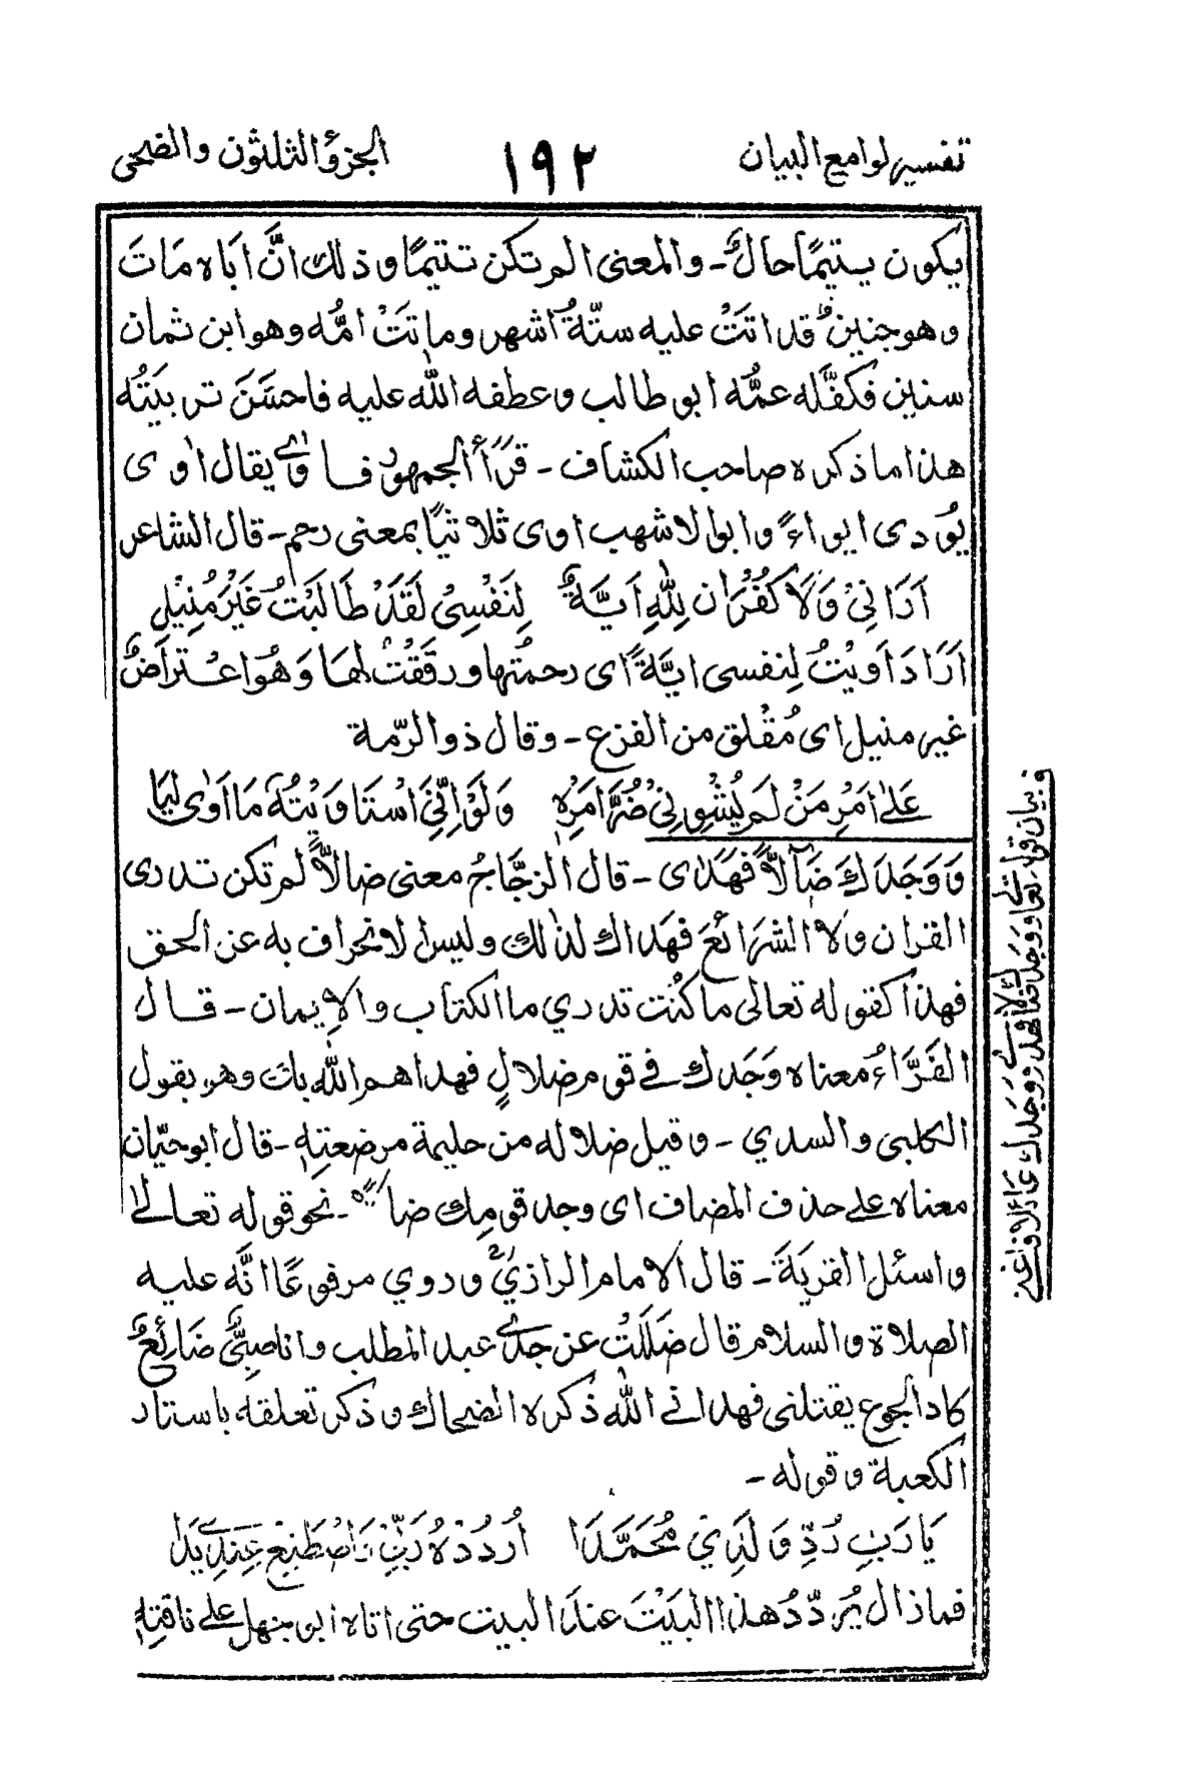 تفسير لوامع البيان ١٩٢ الجزؤ الثلثون والضحى
يكون يتيمًا حالٌ - والمعنى الم تكن يتيمًا وذلك انَّ اَبَاه مَاتَ
وهو جنينٌ قد اتَتْ عليه ستّةُ اشهر وماتَتْ امُّه وهو ابن ثمان
سنين فكفَّله عمُّه ابو طالب وعطفه اللّٰه عليه فاحسَنَ تربيَتُه
هذا ما ذكره صاحب الكشاف - قَرَأَ الجمهور فاٰوٰى يقال اٰوى
يُودى ايواءً وابو الاشهب اوى ثلاثيًا بمعنى رحم - قال الشاعر
اَرَانِىْ وَلَا كُفْرَان لِلّٰهِ اَيَّةً لِنَفْسِىْ لَقَدْ طَالَبْتُ غَيْرَ مُنِيْلِ
اَرَادَ اَوَيْتُ لِنفسى ايَّةً اى رحمتُها ورقَقْتُ لها وَهُوَ اعْتراضٌ
غير منيل اى مُقْلق من الفزع - وقال ذوالرّمة
عَلٰى اَمْرِ مَنْ لَم يُشْوِنِىْ ضُرَّ اَمْرِهٖ وَلَوْ اِنِّىَ اسْتَاوَيْتُهُ مَا اَوٰى لِيَا
وَوَجَدَكَ ضَآلًّا فَهَدٰى - قال الزجَّاجُ معنى ضالًّا لم تكن تدرى
القران ولا الشرَائعَ فهَداك لذالك وليس الانحراف به عن الحق
فهذا كقوله تعالى ما كُنْت تدري ما الكتاب والايمان - قال
الفَرَّاءُ معناه وَجَدك فى قوم ضلالٍ فهداهم اللّٰه بك وهو يقول
الكلبى والسدي - وقيل ضلاله من حليمة مرضعتِهٖ - قال ابوحيّان
معناه على حذف المضاف اى وجد قومك ضالًّا - نحو قوله تعالىٰ
واسئل القريَةَ - قال الامام الرازيؒ وروي مرفوعًا انَّه عليه
الصلاة والسلام قال ضَلَلْتُ عن جدّى عبد المطلب وانا صبِىٌّ ضَائِعٌ
كاد الجوع يقتلنى فهدانى اللّٰه ذكره الضحاك وذكر تعلقه باستار
الكعبة وقوله -
يَا رَبِ رُدِّ وَلَدِيْ مُحَمَّدَا اُرْدُدْهُ رَبِّىْ وَاصْطَنِعْ عِنْدِىْ يَدَا
فما ذال يُرَدِّدُ هذا البَيْتَ عندَ البيت حتى اتاه ابوجهل على ناقتِهٖ
وبيان قوله تعالى ووَجَدَكَ ضَالًّا فهدى ووَجَدك عَائلًا فاَغنى